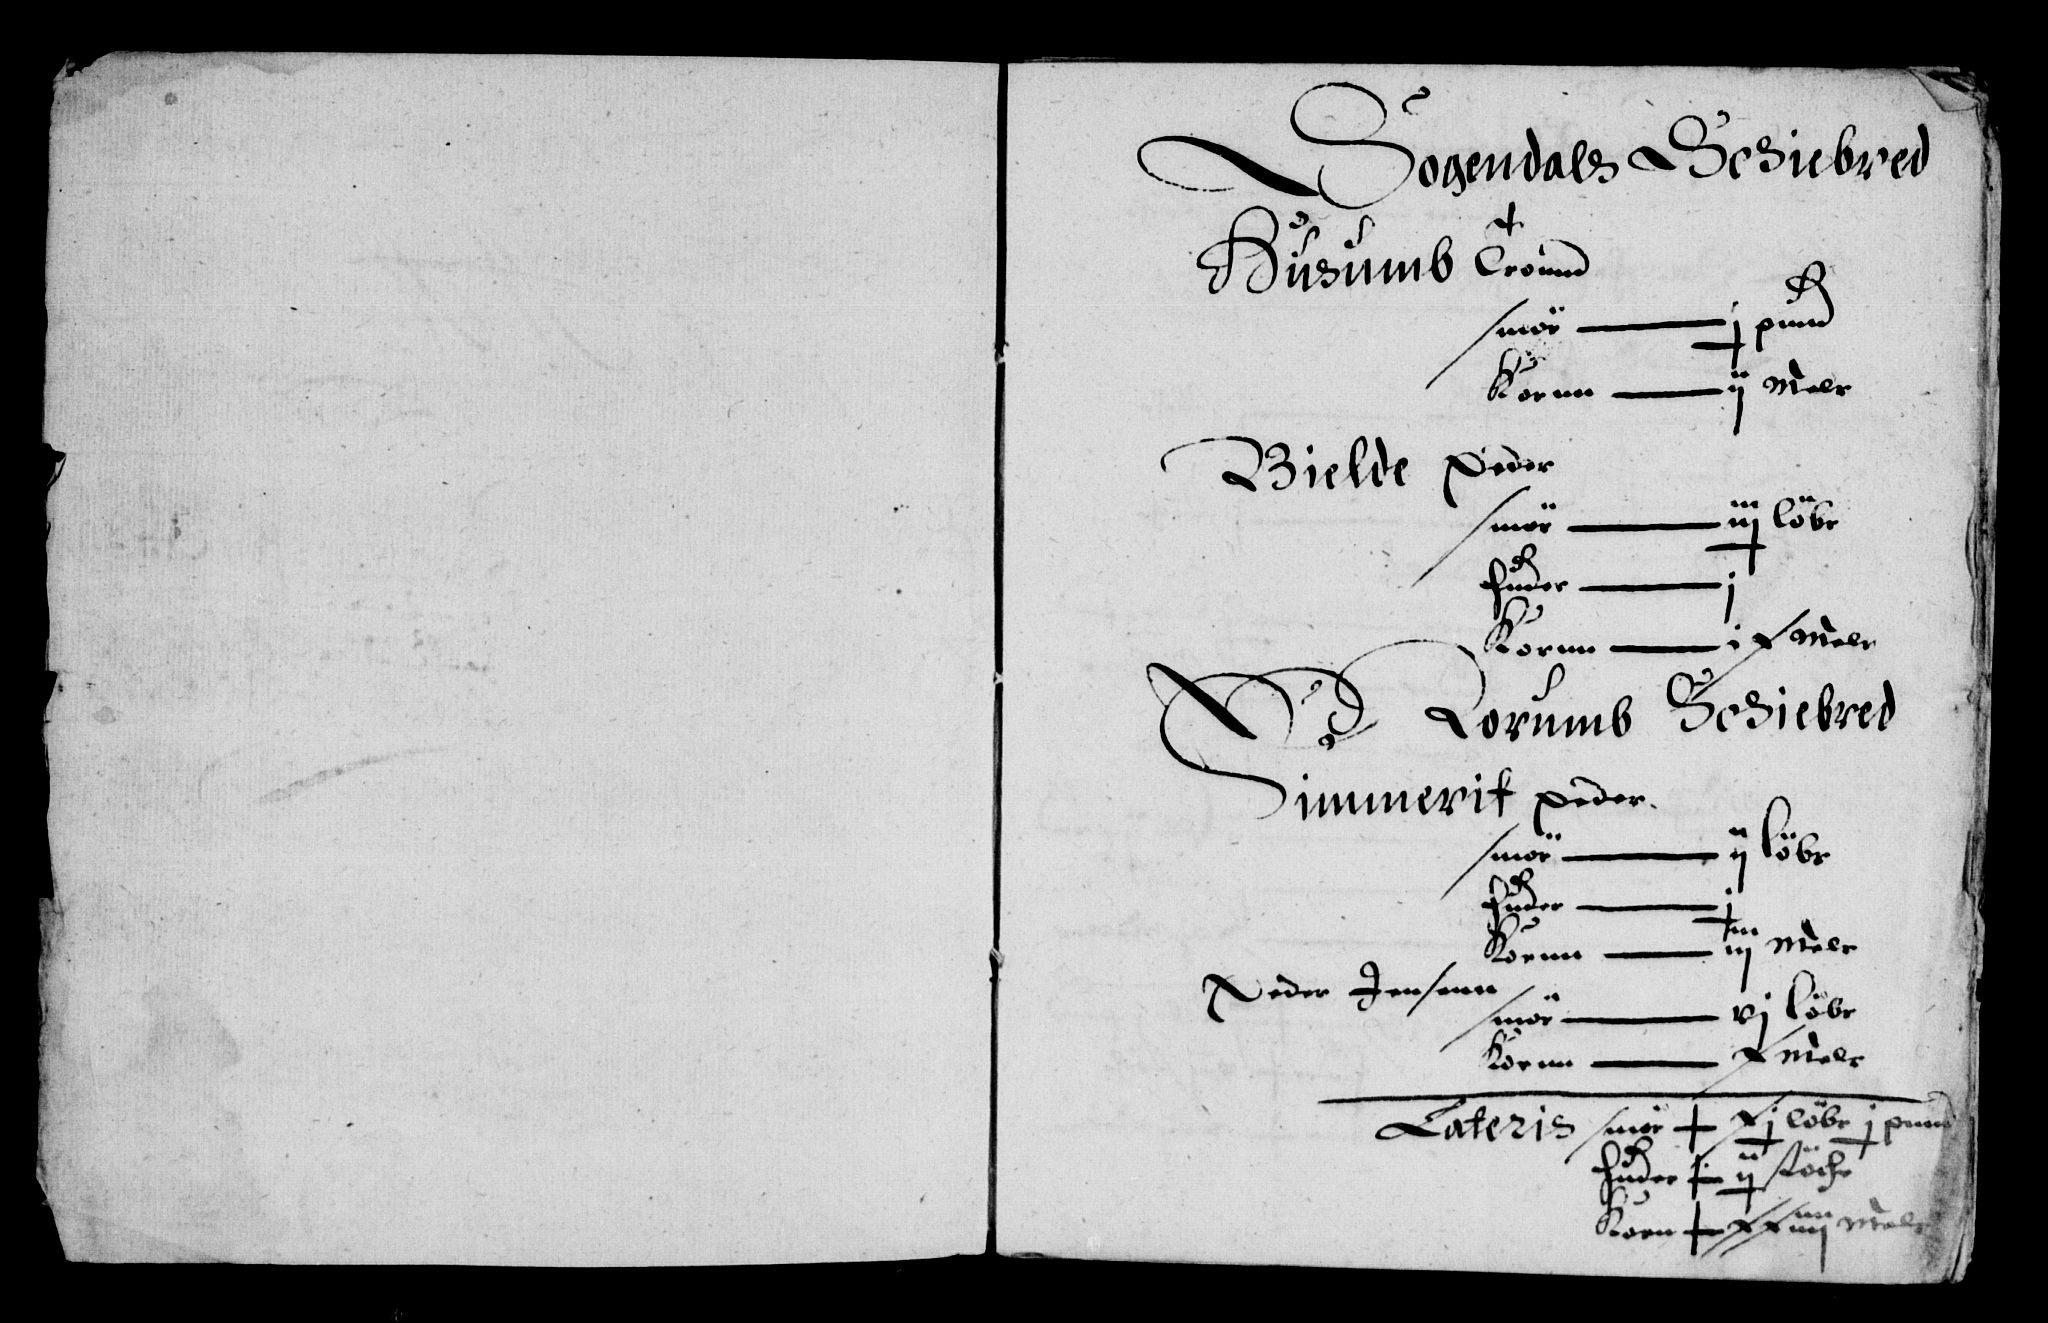 Sogendals Schiebred
Husumb Tround
smör — j pund
Kornn — ij Melr
Bielde Peder
smör — iij löbr
huder — j
Kornn — ix Melr
Lorumb Schiebred
Simmerik peder
smör — ij löbr
huder — j
Kornn — iij Melr
Peder Jensenn
smör — vj löbr
Kornn — x Melr
Lateris smör — xj löbr j pund
huder — ij stöche
Korn — xxiiij Melr